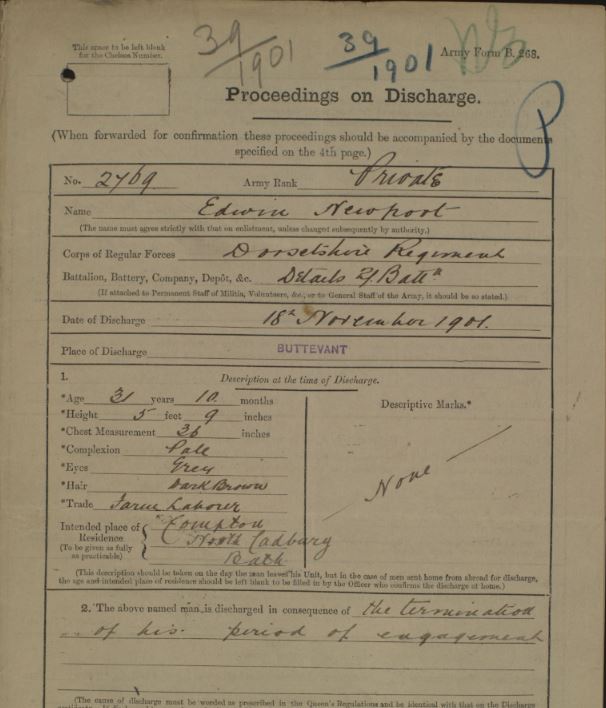 This space to be left blank
for the Chelsea Number.
39/1901
39/1901
Army Form B. 268.
Proceedings on Discharge.
(When forwarded for confirmation these proceedings should be accompanied by the documents
specified on the 4th page.)
No. 2769 Army Rank Private
Name Edwin Newport
(The name must agree strictly with that on enlistment, unless changed subsequently by authority.)
Corps of Regular Forces Dorsetshire Regiment
Battalion, Battery, Company, Depôt, &c. Details 2/Battn
(If attached to Permanent Staff of Militia, Volunteers, &c., or to General Staff of the Army, it should be so stated.)
Date of Discharge 18th November 1901.
Place of Discharge BUTTEVANT
1. Description at the time of Discharge.
*Age 31 years 10 months
*Height 5 feet 9 inches
*Chest Measurement 36 inches
*Complexion Pale
*Eyes Grey
*Hair Dark Brown
*Trade Farm Laborer
Intended place of Residence (To be given as fully as practicable) Compton
North Cadbury
Bath
Descriptive Marks.*
None
(This description should be taken on the day the man leaves his Unit, but in the case of men sent home from abroad for discharge,
the age and intended place of residence should be left blank to be filled in by the Officer who confirms the discharge at home.)
2. The above named man is discharged in consequence of the termination
of his period of engagement
(The cause of discharge must be worded as prescribed in the Queen's Regulations and be identical with that on the Discharge